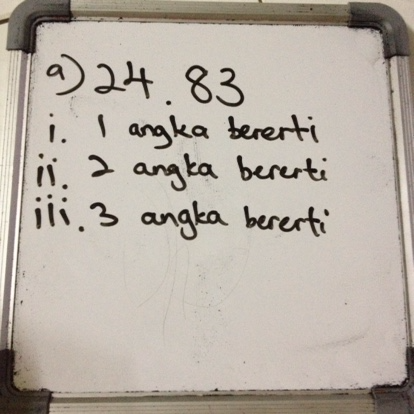 a) 24.83
i. 1 angka bererti
ii. 2 angka bererti
iii. 3 angka bererti